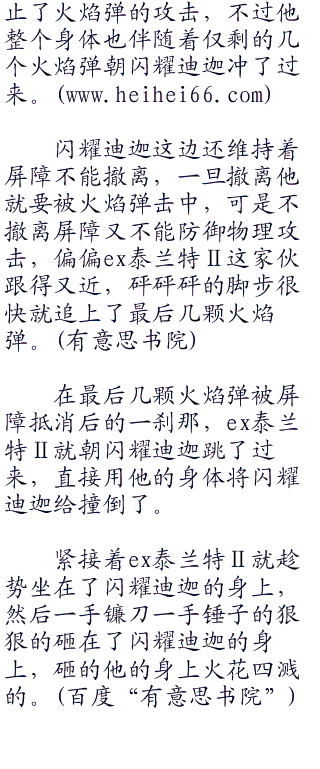 止了火焰弹的攻击，不过他
整个身体也伴随着仅剩的几
个火焰弹朝闪耀迪迦冲了过
来。(www.heihei66.com)
闪耀迪迦这边还维持着
屏障不能撤离，一旦撤离他
就要被火焰弹击中，可是不
撤离屏障又不能防御物理攻
击，偏偏ex泰兰特Ⅱ这家伙
跟得又近，砰砰砰的脚步很
快就追上了最后几颗火焰
弹。(有意思书院)
在最后几颗火焰弹被屏
障抵消后的一刹那，ex泰兰
特Ⅱ就朝闪耀迪迦跳了过
来，直接用他的身体将闪耀
迪迦给撞倒了。
紧接着ex泰兰特Ⅱ就趁
势坐在了闪耀迪迦的身上，
然后一手镰刀一手锤子的狠
狠的砸在了闪耀迪迦的身
上，砸的他的身上火花四溅
的。(百度“有意思书院”)